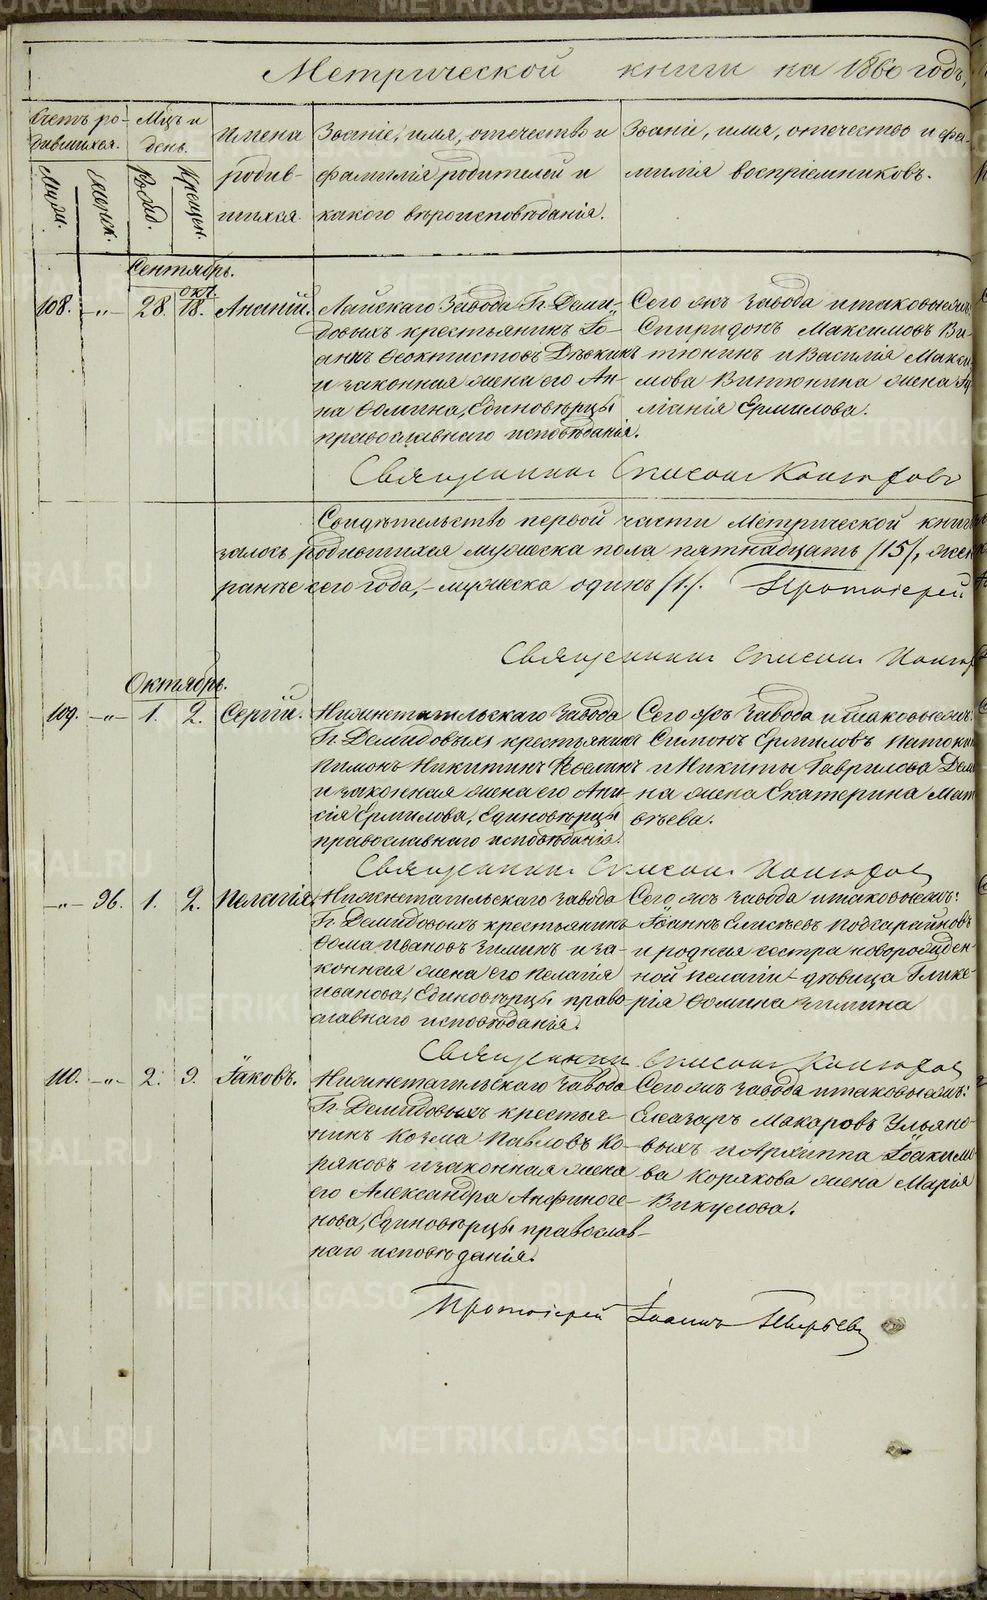 Метрической книги на 1860 годъ,
Счетъ ро-
дившихся.
Мцъ и
день.
Имена
родив-
шихся.
Званіе, имя, отечество и
фамилія родителей и
какого вѣроисповѣданія.
Званіе, имя, отечество и фа-
милія воспріемниковъ.
Муж.
Женск.
Рожд.
Крещен.
Сентябрь.
Окт.
108. -"- 28. 18. Ананій.
Лайскаго Завода Гг. Деми-
довыхъ крестьянинъ Іо-
аннъ Ѳеоктистовъ
и законная жена его Ан-
на Ѳомина, Единовѣрцы
православнаго исповѣданія.
Сего жъ завода и таковыежъ
Спиридонъ Максимовъ Ви-
тюнинъ и Василія Макси
мова Витюнина жена
Ермилова.
Священникъ
Свидѣтельство первой части Метрической книги
залось родившихся мужеска пола пятнадцать /15/, жен
ранѣе сего года,- мужеска одинъ /1/. Протоіерей
Священникъ
Октябрь.
109. -"- 1. 2. Сергій.
Нижнетагильскаго завода
Гг. Демидовыхъ крестьянинъ
Пимонъ Никитинъ
и законная жена его Ани-
сія Ермилова, Единовѣрцы
православнаго исповѣданія.
Сего жъ завода и таковыежъ:
Симонъ Ермиловъ
и Никиты Гаврилова
на жена Екатерина Мат
вѣева.
Священникъ
-"- 96. 1. 2. Пелагія.
Нижнетагильскаго завода
Гг. Демидовыхъ крестьянинъ
Ѳома Ивановъ Зиминъ и за-
конная жена его Пелагія
Иванова, Единовѣрцы право-
славнаго исповѣданія.
Сего жъ завода и таковыежъ:
Іоаннъ Елисѣевъ Подсарайновъ
и родная сестра новорожден-
ной Пелагіи - дѣвица Глике-
рія Ѳомина Зимина
Священникъ
110. -"- 2. 9. Іаковъ.
Нижнетагильскаго завода
Гг. Демидовыхъ крестья-
нинъ Козма Павловъ Ко-
ряковъ и законная жена
его Александра Анфиноге-
нова, Единовѣрцы православ-
наго исповѣданія.
Сего жъ завода и таковыежъ:
Елеазаръ Макаровъ Ульяно-
выхъ и Архиппа Іоакимо
ва Корякова жена Марія
Викулова.
Протоіерей Іоаннъ
METRIKI.GASO-URAL.RU